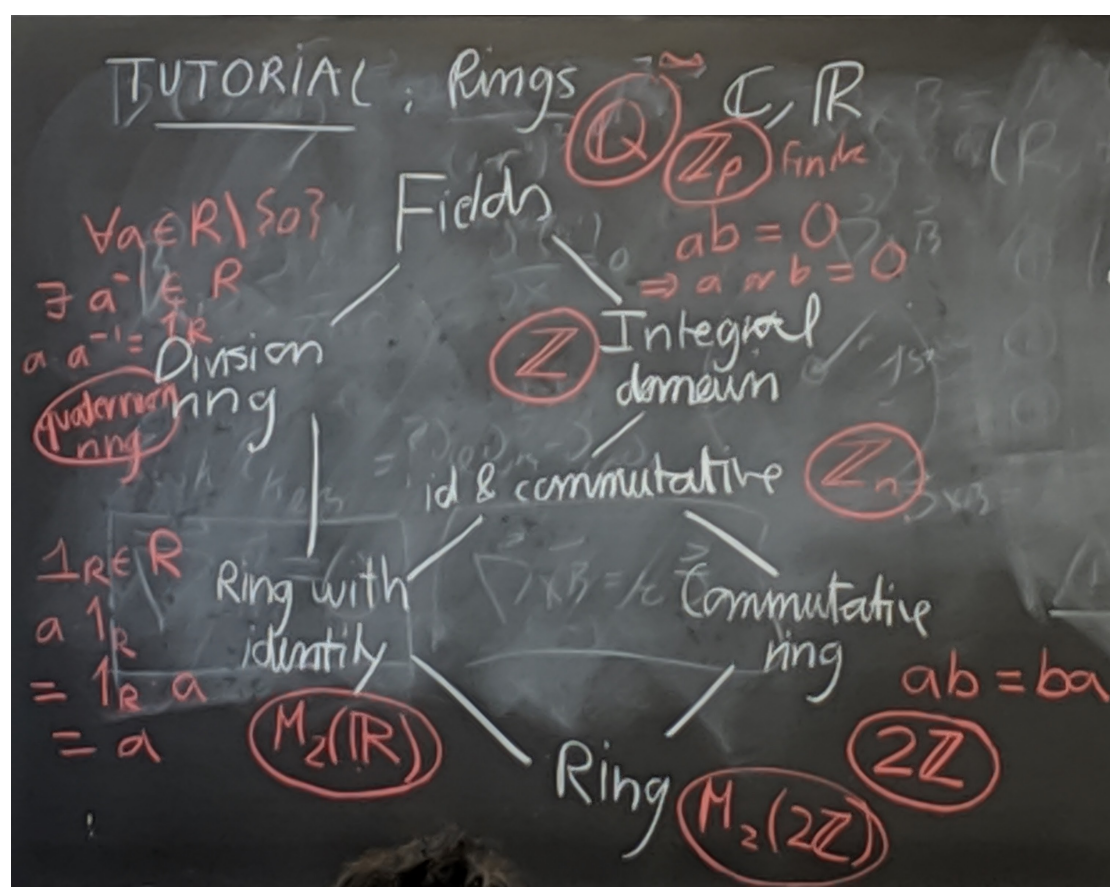 TUTORIAL : Rings
ℂ, ℝ
ℚ
ℤₚ finite
Fields
∀a∈R\{0}
∃ a⁻¹ ∈ R
a a⁻¹ = 1_R
ab = 0
⇒ a or b = 0
Division
ring
quaternion
ring
ℤ
Integral
domain
id & commutative
ℤₙ
1_R ∈ R
a 1_R
= 1_R a
= a
Ring with
identity
M₂(ℝ)
Commutative
ring
ab = ba
2ℤ
Ring
M₂(2ℤ)
∇×B =